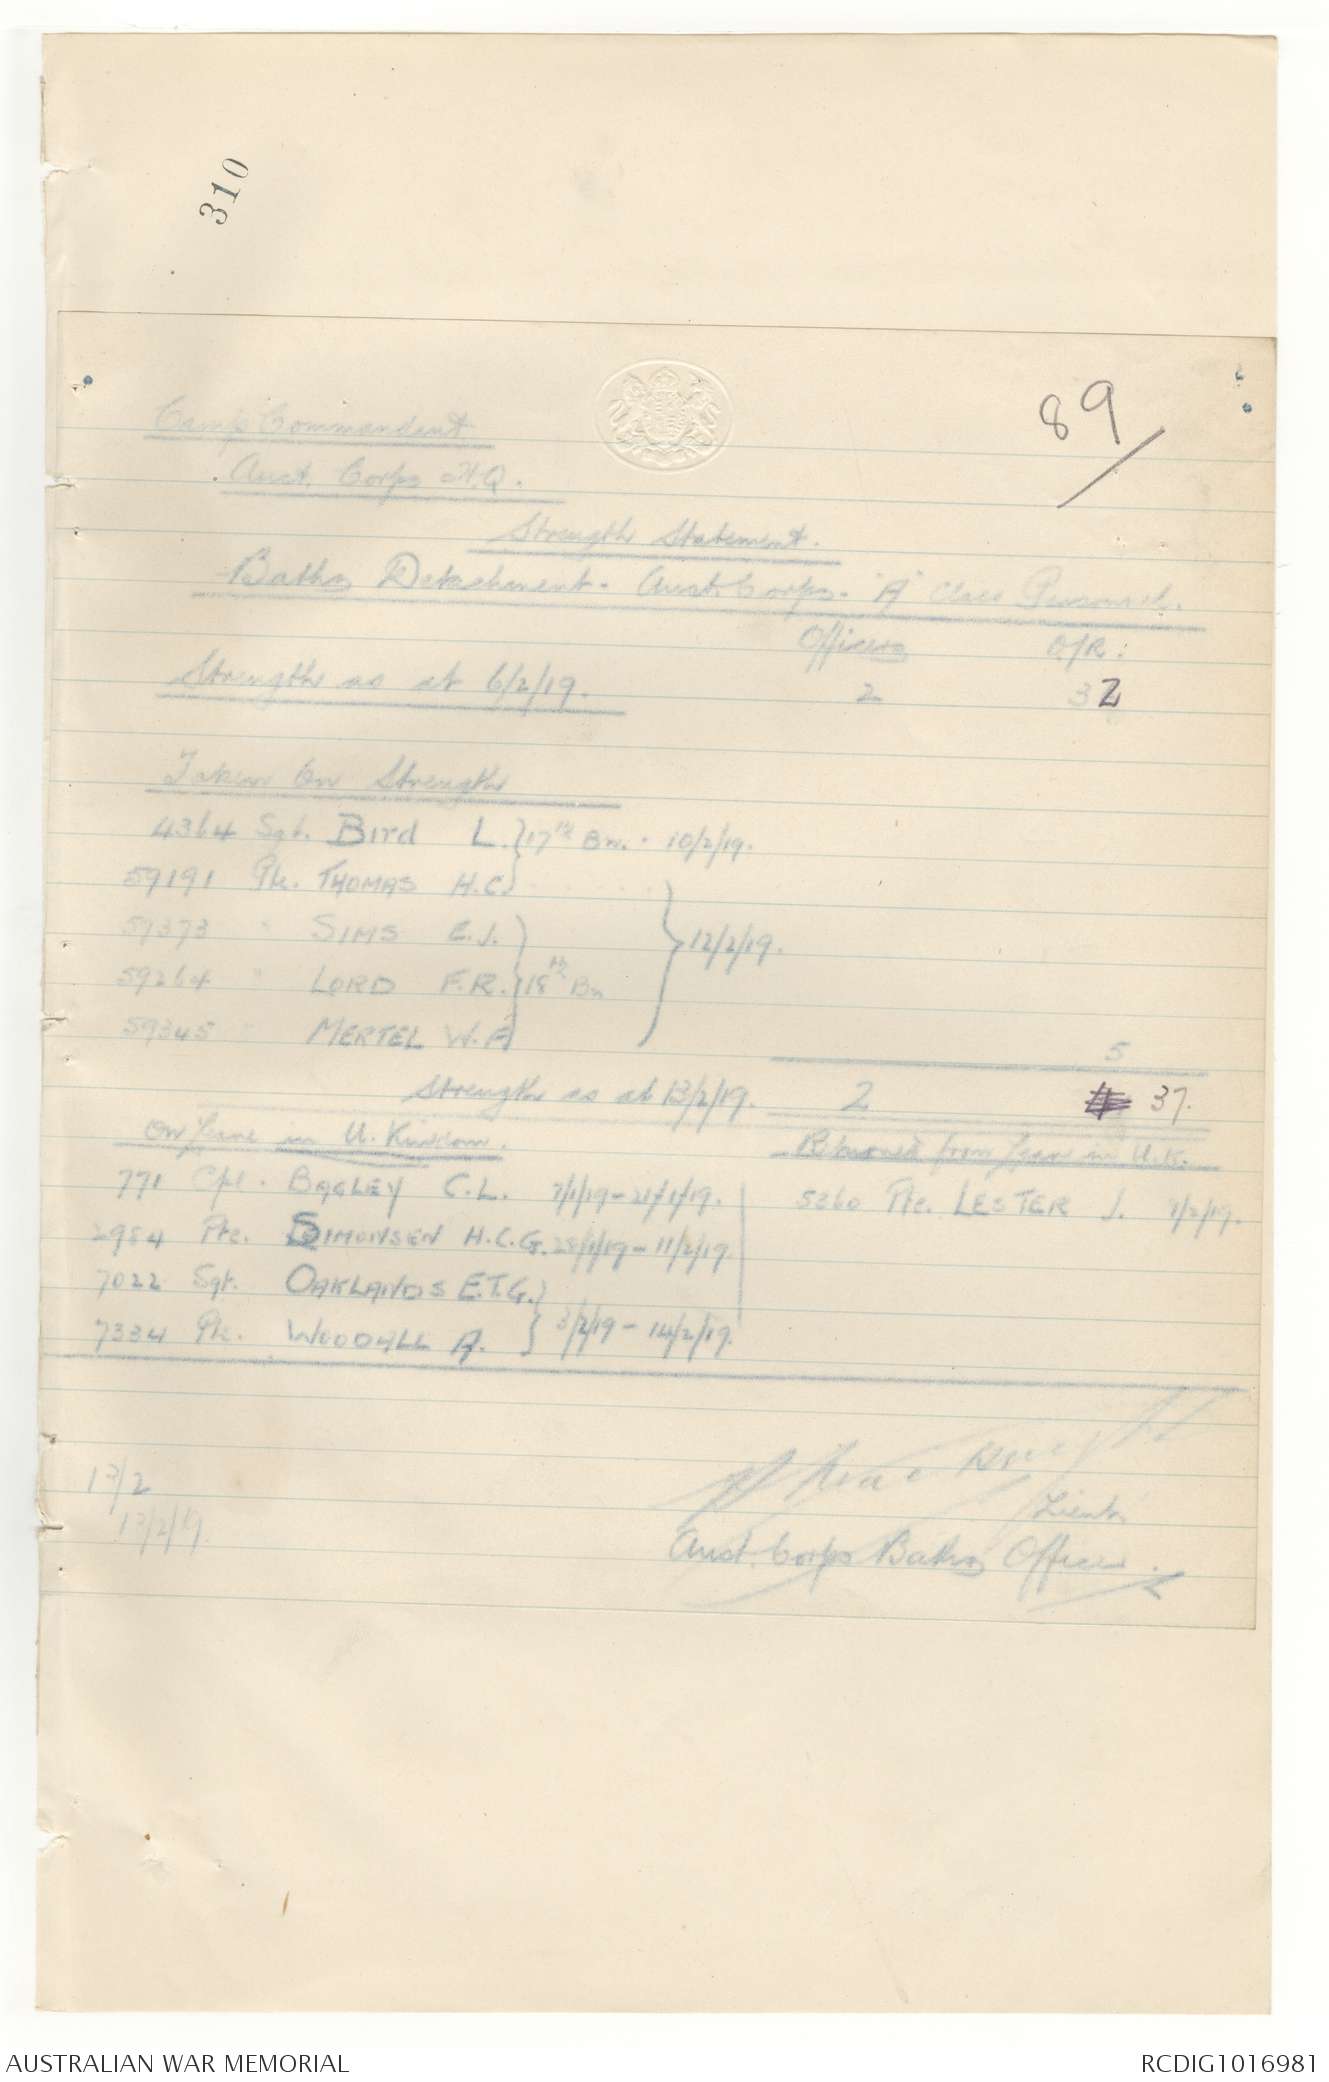 310
89
Camp Commandent
Aust. Corps H.Q.
Strength Statement.
Baths Detachment. Aust. Corps. "A" Class Personnel.
Officers O/R:
Strength as at 6/2/19. 2 32
Taken On Strength
4364 Sgt. Bird L. } 17th Bn. 10/2/19.
59191 Pte. THOMAS H.C. } 12/2/19.
59373 " SIMS E.J.
59264 " LORD F.R. } 18th Bn
59345 " MERTEL W.F
5
Strength as at 13/2/19. 2 37.
On Leave in U. Kindom. Returned from Leave in U.K.
771 Cpl. BAGLEY C.L. 7/1/19-21/1/19. 5260 Pte. LESTER J. 7/2/19.
2984 Pte. SIMONSEN H.C.G. 28/1/19-11/2/19.
7022 Sgt. OAKLANDS E.T.G. }
7334 Pte. WOODALL A. } 3/2/19-14/2/19.
13/2
13/2/19.
Lieut,
Aust. Corps Baths Officer.
AUSTRALIAN WAR MEMORIAL RCDIG1016981